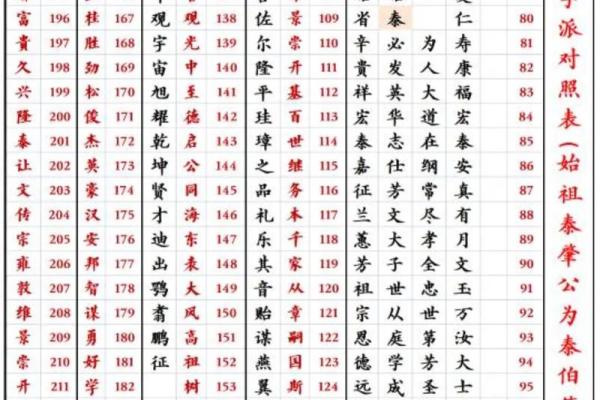 富 196 桂 167 观 观 138 佐 景 109 省 泰 文 仁 80
贵 197 胜 168 宇 光 139 尔 崇 110 辛 必 为 寿 81
久 198 劲 169 宙 中 140 隆 开 111 贵 发 人 康 82
兴 199 松 170 旭 至 141 平 基 112 祥 英 大 福 83
隆 200 俊 171 耀 德 142 珪 百 113 宏 华 道 宏 84
泰 201 杰 172 乾 启 143 璋 世 114 泰 志 在 泰 85
让 202 英 173 坤 公 144 之 继 115 嘉 仕 纲 安 86
文 203 豪 174 贤 同 145 品 务 116 征 芳 常 真 87
传 204 汉 175 才 海 146 礼 本 117 兰 文 尽 有 88
宗 205 安 176 迪 东 147 乐 千 118 蕙 大 孝 月 89
雍 206 邦 177 出 衰 148 其 家 119 芳 子 全 文 90
敦 207 智 178 鹗 大 149 音 从 120 祖 世 忠 玉 91
维 208 谋 179 翥 风 150 贻 章 121 宗 从 世 万 92
景 209 勇 180 鹏 高 151 谋 嗣 122 恩 庭 第 汝 93
崇 210 好 181 征 祖 152 燕 国 123 德 学 芳 大 94
开 211 学 182 树 153 翼 斯 124 远 成 圣 士 95
派对照表(始祖泰肇公为泰伯